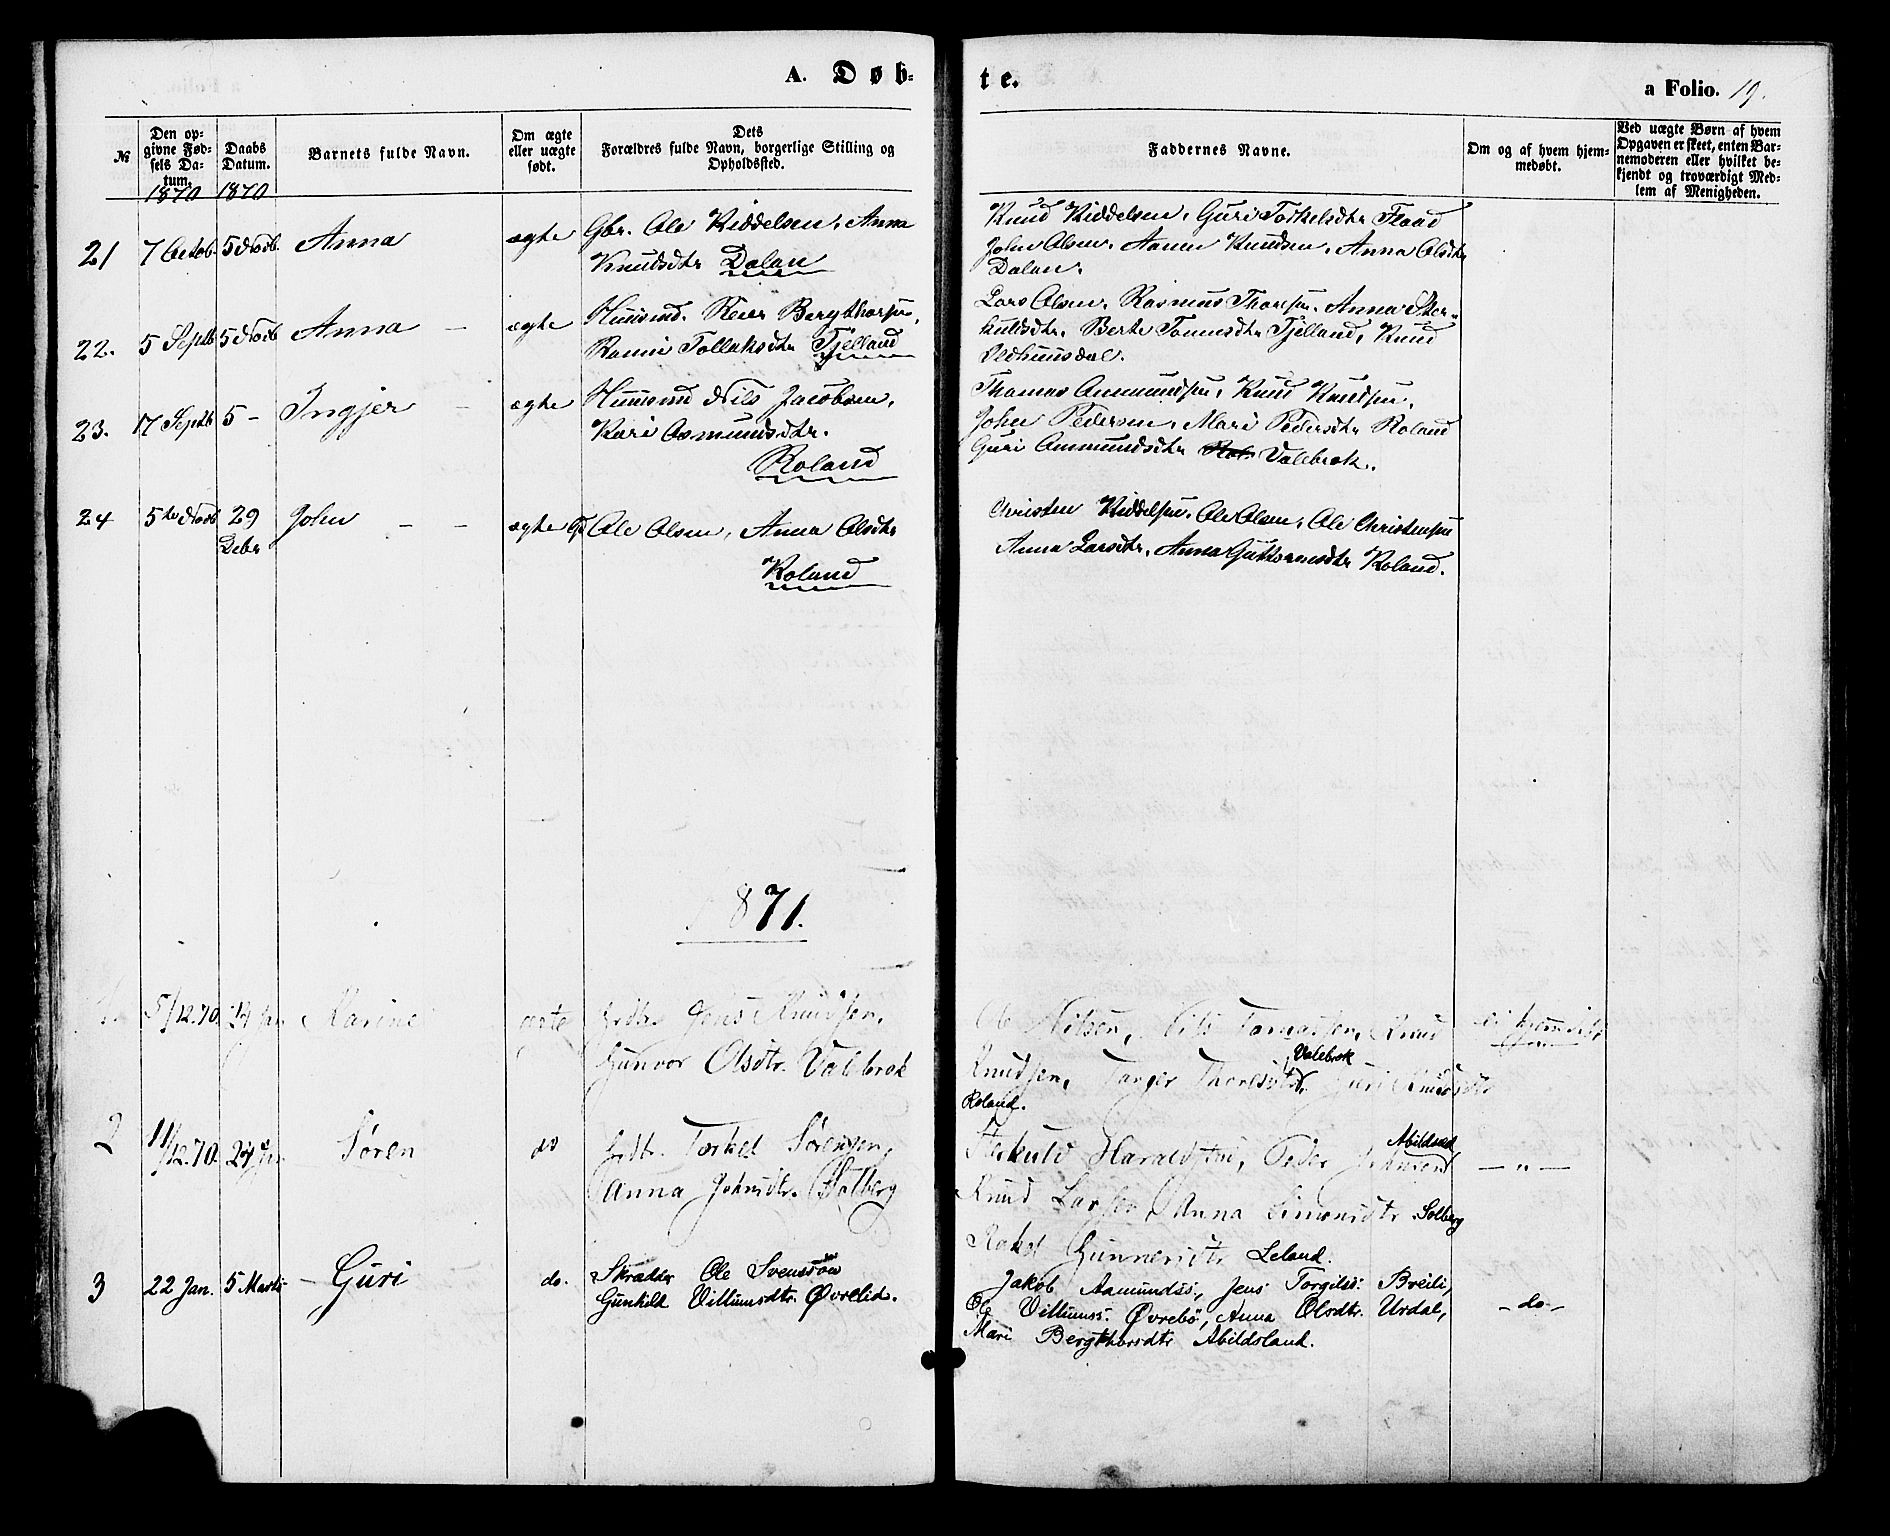 A. Døb-
te.
a Folio. 19.
№
Den op-
givne Fød-
sels Da-
tum.
1870
Daabs
Datum.
1870
Barnets fulde Navn.
Om ægte
eller uægte
født.
Dets
Forældres fulde Navn, borgerlige Stilling og
Opholdssted.
Faddernes Navne.
Om og af hvem hjem-
medøbt.
Ved uægte Børn af hvem
Opgaven er skeet, enten Bar-
nemoderen eller hvilket be-
kjendt og troværdigt Med-
lem af Menigheden.
21 7 Octob. 5 Novb. Anna ægte Gbr. Ole Kiddelsen, Anna
Knudsdtr Dalan
Knud Kiddelsen, Guri Torkelsdtr Flaad
John Olsen, Aanen Knudsen, Anna Olsdtr
Dalan.
22. 5 Septb 5 Novb Anna – ægte Huusmd. Reier Bergthorsen,
Ranni Tollaksdtr Tjelland
Lars Olsen, Rasmus Thorsen, Anna Ther-
kuldsdtr, Berte Tomusdtr Tjelland, Knud
23. 17 Septb 5 – Ingjer – ægte Huusmd Nils Jacobsen,
Kari Asmundsdtr.
Roland
Thomas Aanmundsen, Knud Knudsen,
John Pedersen, Mari Pedersdtr Roland
Guri Aanmundsdtr Valebrok.
24 5te Novb 29
Debr John – – ægte Gb Ole Olsen, Anna Olsdtr
Roland
Christen Kiddelsen, Ole Olsen, Ole Christensen
Anna Larsdtr, Anna Guttormsdtr Roland.
1871.
1. 5/12.70. 24 Jan. Karine ægte Grdbr. Jens Knudsen,
Gunvor Olsdtr. Valebrok
Ole Nilsen, Nils Tomassen, Knud
Knudsen, Torger Thoresdtr, Valebrok Guri Knudsdtr
Roland.
2 11/12.70. 24 Jan Søren do Grdbr. Torkel Sørensen,
Anna Johnsdtr. Solberg
Terkuld Haraldstad, Peder Johnsen Abildsnd,
Knud Larsen, Anna Simonsdtr Solberg
Rakel Gunnersdtr Leland.
– " –
3 22 Jan. 5 Marts – Guri do. Skrædder Ole Svenssøn
Gunhild Villumsdtr. Øvrelid.
Jakob Aamundss, Jens Torgilss: Breili,
Ole Villumss. Øvrebø, Anna Olsdtr. Urdal,
Mari Bergthorsdtr Abildsland.
– do –